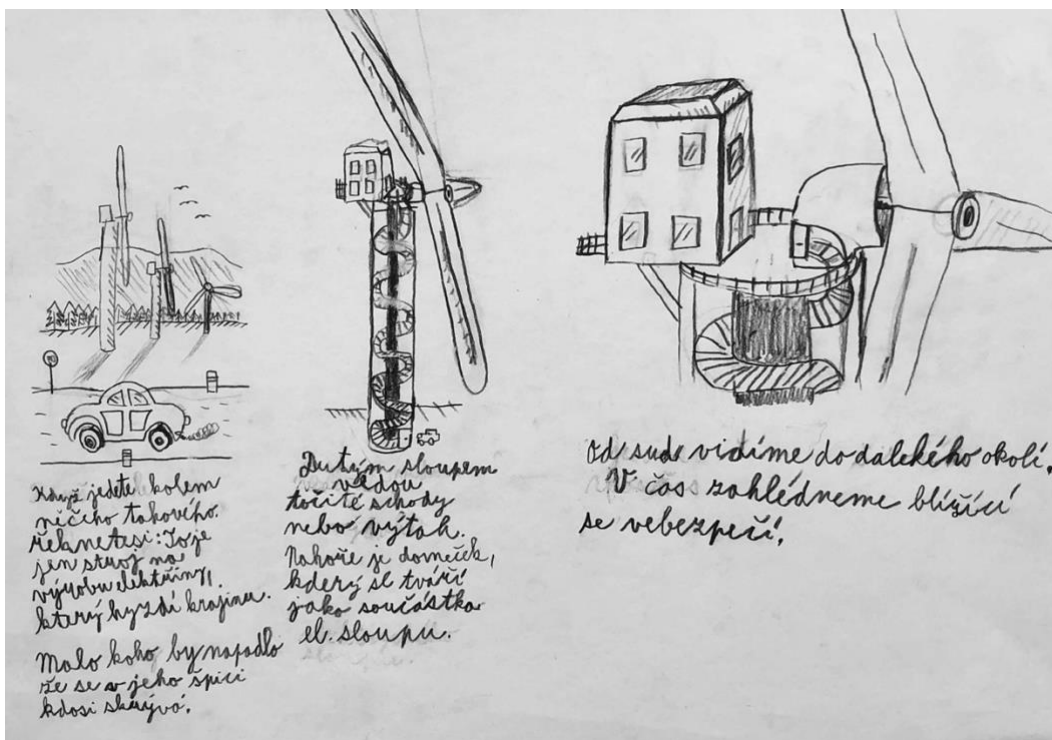 Když jedete kolem
něčího takového.
řeknetesi: To je
jen stroj na
výrobu elektřiny,
který hyzdí krajinu.
Malo koho by napadlo
že se v jeho špici
kdosi skrývá.
Dutým sloupem
vedou
točité schody
nebo výtah.
Nahoře je domeček,
kderý se tváří
jako součástka
el. sloupu.
Od sud vidíme do dalekého okolí.
V čas zahlédneme blížící
se nebezpečí.